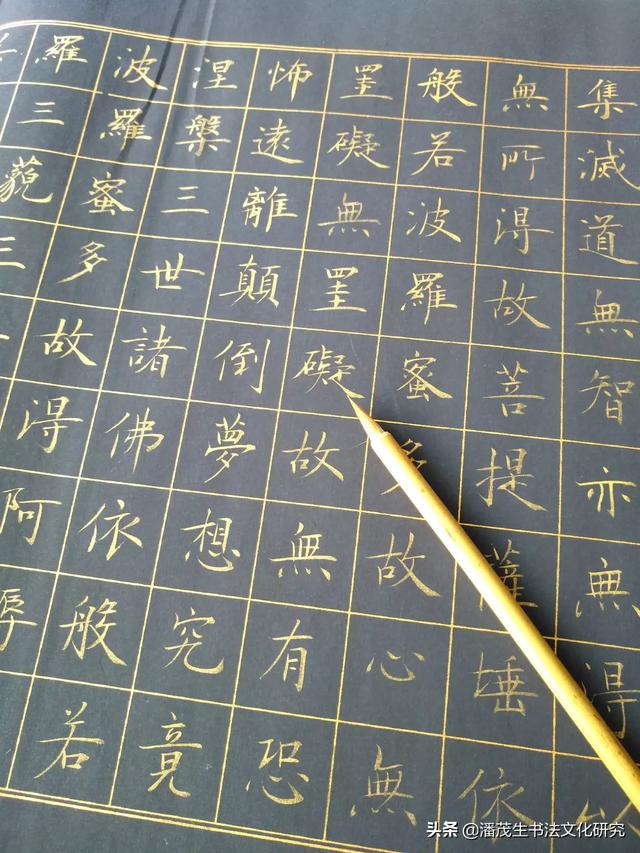 集滅道無智亦無得以
無所得故菩提薩埵依
般若波羅蜜多故心無
罣礙無罣礙故無有恐
怖遠離顛倒夢想究竟
涅槃三世諸佛依般若
波羅蜜多故得阿
羅三藐三
头条 @潘茂生书法文化研究